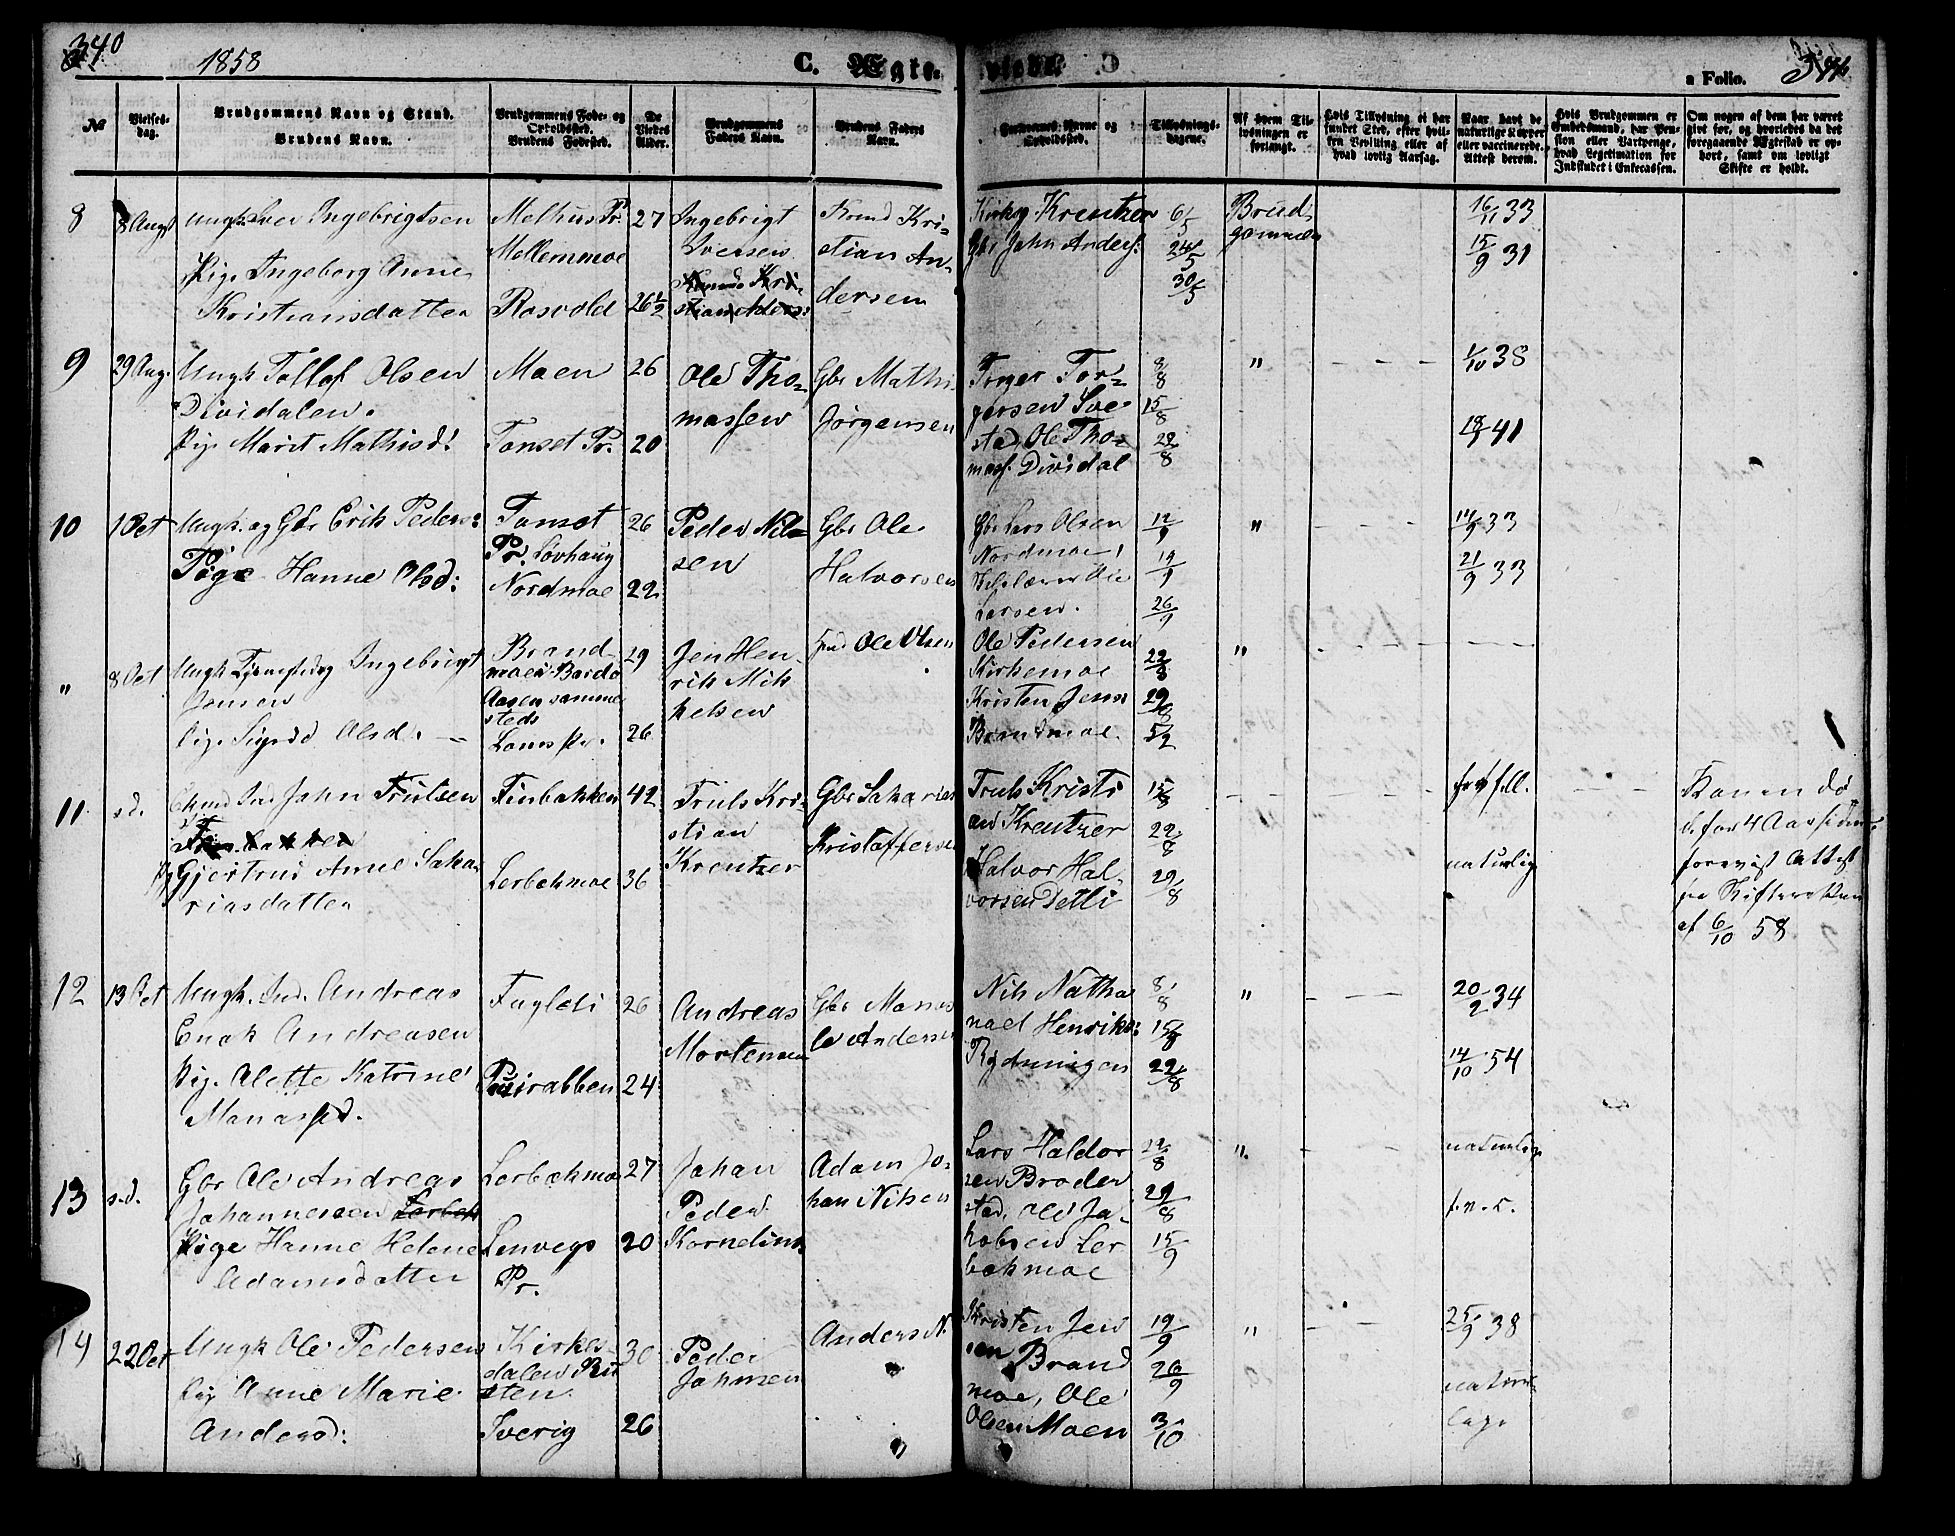 340
1858
C. Ægte-
vielse.
a Folio.
№
Vielses-
dag.
Brudgommens Navn og Stand.
Brudens Navn.
Brudgommens Føde- og
Opholdssted.
Brudens Fødested.
De
Viedes
Alder.
Brudgommens
Faders Navn.
Brudens Faders
Navn.
Forlovernes Navne og
Opholdssted.
Tillysnings-
dagene.
Af hvem Til-
lysningen er
forlangt.
Hvis Tillysning ei har
fundet Sted, efter hvil-
ken Bevilling eller af
hvad lovlig Aarsag.
Naar havt de
naturlige Kopper
eller vaccinerede.
Attest derom.
Hvis Brudgommen er
Embedsmand, har Pen-
sion eller Vartpenge,
hvad Legitimation for
Indskudet i Enkecassen.
Om nogen af dem har været
givt før, og hvorledes da det
foregaaende Ægteskab er op-
hørt, samt om lovligt
Skifte er holdt.
8
8 Augst
Ungk. Iver Ingebrigtsen
Pige Ingeborg Anne
Kristiansdatter
Melhus Pr.
Mellemmoe
Rosvold
27
26½
Ingebrigt
Iversen
Kristian An-
dersen
Kreutzer
Gbr John Anders:
6/5
24/5
30/5
Brud
gommen
16/11 33
15/9 31
9
29 Aug.
Ungk Tollef Olsen
Dividalen.
Pige Marit Mathisd:
Moen
Tonset Pr.
26
20
Ole Tho-
massen
Gbr Mathis
Jørgensen
Torger Tor-
gersen
stad, Ole Tho-
mass. Dividal
8/8
15/8
22/8
"
- - -
1/10 38
41
10
1 Oct
Ungk. og Gbr Erik Peders:
Pige Hanne Olsd:
Tonset
Pr. Løvhaug
Nordmoe
26
22
Peder Nil-
sen
Gbr Ole
Halvorsen
Gbr Lars Olsen
Nordmoe,
Larsen.
12/9
19/9
26/9
"
- - -
14/9 33
21/9 33
"
8 Oct
Ungk Ingebrigt
Jensen
Pige Sigrid Olsd.
Brand
moen Bardo
Aasen samme
steds
Loms Pr.
29
26
Jen Hen-
rik Mik
kelsen
Ole Olsen
Ole Pedersen
Kirkemoe
Kristen Jens
Brandmoe
22/8
29/8
"
- - -
11
s.d.
Ekmd Ind John Trulsen
Finbakken
Pg Gjertrud Anne Saka-
riasdatter
Finbakken
Lerbekmoe
42
36
Truls Kri-
stian
Kreutzer
Gbr Sakarias
Kristaffersen
Truls Kristi
an Kreutzer
Halvor Hal-
vorsen Detli
15/8
22/8
29/8
- - -
naturlig
- -
Konen dø
de for 4 Aar siden
forevist Attest
fra Skifteretten
af 6/10 58
12
13 Oct
Ungk. Ind. Andreas
Enok Andreasen
Pige Alette Katrine
Manassed.
Fagleli
26
24
Andreas
Mortensen
Gbr Manas
se Andersen
Nils Natha
nael Henriks:
Rydningen
8/8
15/8
22/8
"
- - -
20/2 34
14/10 54
13
s.d.
Gbr Ole Andreas
Johannessen
Pige Hanne Helene
Adamsdatter
Lerbekmo
Lenvegs
Pr.
27
20
Johan
Peder
Kornelius
Adam Jo-
han Nilsen
Lars Haldor
sen Broder
stad, Ole Ja-
kobsen Ler
bekmoe
22/8
29/8
15/9
"
- -
naturlige
14
22 Oct
Ungk Ole Pedersen
Pige Anne Marie
Andersd:
Kirkes-
dalen Ru
sten
Sverig
30
26
Peder
Johnsen
Anders N.
Kristen Jen
sen Brand
moe, Ole
Olsen Moen
19/9
26/9
3/10
"
- -
25/9 38
natur-
lige